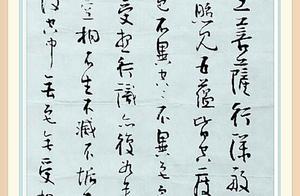 在菩薩行深般
照見五蘊皆空度
色不異空々不異色
受想行識亦復如是
空相不生不滅不垢
空中無色無受想